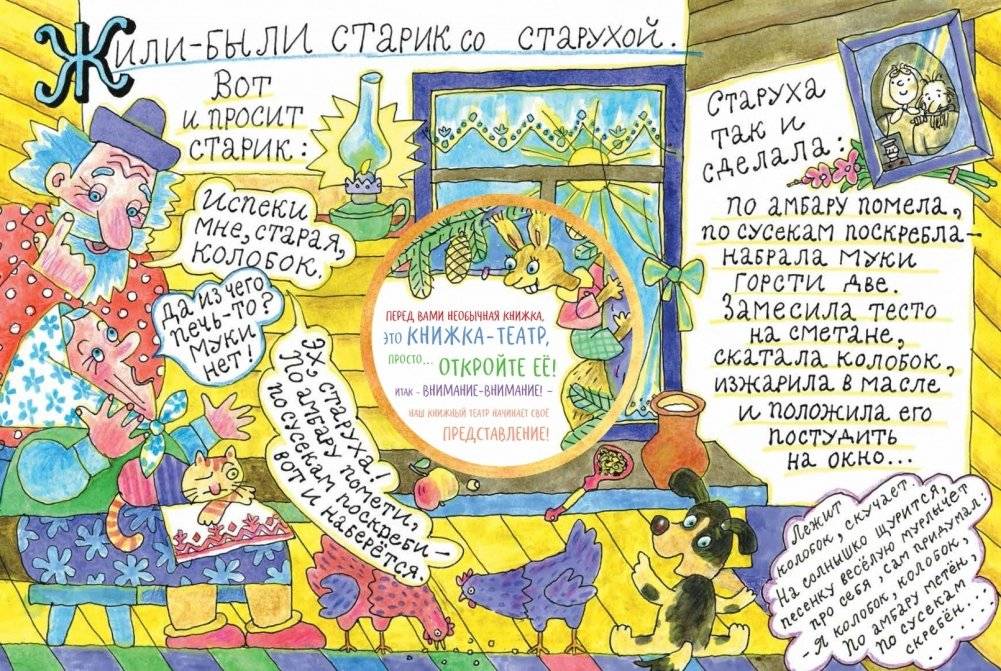 Жили-были старик со старухой.
Вот
и просит
старик:
Испеки
мне, старая,
колобок.
Да из чего
печь-то?
Муки
нет!
Эх, старуха!
По амбару помети,
по сусекам поскреби –
вот и наберётся.
Перед вами необычная книжка,
это книжка-театр,
просто... откройте её!
Итак - внимание-внимание! –
наш книжный театр начинает своё
представление!
Старуха
так и
сделала:
по амбару помела,
по сусекам поскребла –
набрала муки
горсти две.
Замесила тесто
на сметане,
скатала колобок,
изжарила в масле
и положила его
постудить
на окно...
Лежит
колобок, скучает.
На солнышко щурится,
песенку весёлую мурлычет
про себя, сам придумал:
- Я колобок, колобок,
По амбару метён,
по сусекам
скребён...